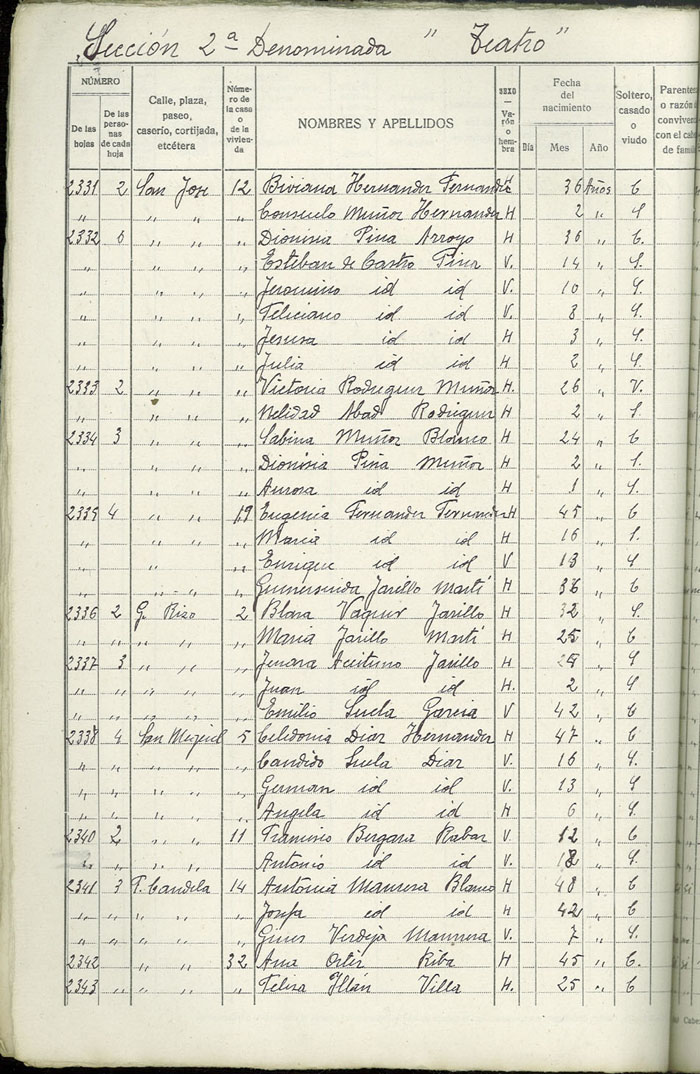 Sección 2ª Denominada " Teatro "
NÚMERO
De las hojas
De las personas de cada hoja
Calle, plaza, paseo, caserío, cortijada, etcétera
Número de la casa o de la vivienda
NOMBRES Y APELLIDOS
SEXO — Varón o hembra
Fecha del nacimiento
Día Mes Año
Soltero, casado o viudo
Parentes
o razón d
conviven
con el cab
de famil
2331 2 San Jose 12 Biviana Hernander Fernandez H 36 Años C
„ „ „ „ Consuelo Muñor Hernander H 2 „ S.
2332 6 „ „ „ Dionisia Pina Arroyo H 36 „ C.
„ „ „ „ Esteban de Castro Pina V. 14 „ S.
„ „ „ „ Jeronimo id id V. 10 „ S.
„ „ „ „ Feliciano id id V. 8 „ S.
„ „ „ „ Jesusa id id H 3 „ S.
„ „ „ „ Julia id id H 2 „ S.
2333 2 „ „ „ Victoria Rodriguer Muñor H. 26 „ V.
„ „ „ „ Nelidad Abad Rodriguer H 2 „ S.
2334 3 „ „ „ Sabina Muñor Blanco H 24 „ C
„ „ „ „ Dionisia Piña Muñor H 2 „ S.
„ „ „ „ Aurora id id H 1 „ S.
2335 4 „ „ 19 Eugenia Fernander Fernander H 45 „ C
„ „ „ „ Maria id id H 16 „ S.
„ „ „ „ Enrique id id V 13 „ S
„ „ „ „ Gumersinda Jarillo Martí H 36 „ C
2336 2 G. Rizo 2 Blasa Vaquer Jarillo H 32 „ S.
„ „ „ „ „ Maria Jarillo Martí H 25 „ C
2337 3 „ „ „ Jenara Aceituno Jarillo H „ S
„ „ „ „ „ Juan id id H. 2 „ S
„ „ „ „ „ Emilio Suela Garcia V 42 „ C
2338 4 San Miguel 5 Celedonia Diar Hernander H 47 „ C
„ „ „ „ „ Candido Suela Diar V. 16 „ S.
„ „ „ „ „ German id id V. 13 „ S
„ „ „ „ „ Angela id id H 6 „ S.
2340 2 „ „ 11 Francisco Bergara Rabar V. 12 „ C
„ „ „ „ „ Antonio id id V. 18 „ S.
2341 3 T. Candela 14 Antonia Manresa Blanco H 48 „ C
„ „ „ „ „ Josefa id id H 42 „ C
„ „ „ „ „ Gines Verdejo Manresa V. 7 „ S.
2342 „ „ 32 Ana Ortir Riba H 45 „ C.
2343 „ „ „ „ Felisa Illán Villa H. 25 „ C